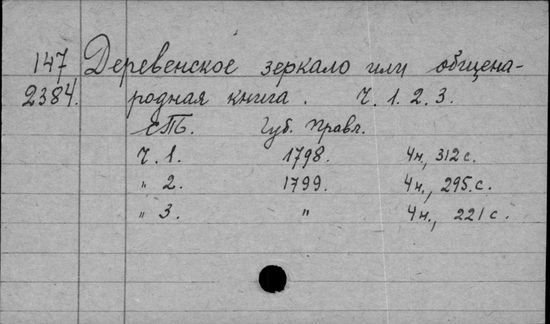 147 Деревенское зеркало или общена-
2384. родная книга. Ч. 1. 2. 3.
СПб. Губ. Правл.
Ч. 1. 1798. 4н., 312 с.
" 2. 1799. 4н., 295. с.
" 3. " 4н., 221 с.